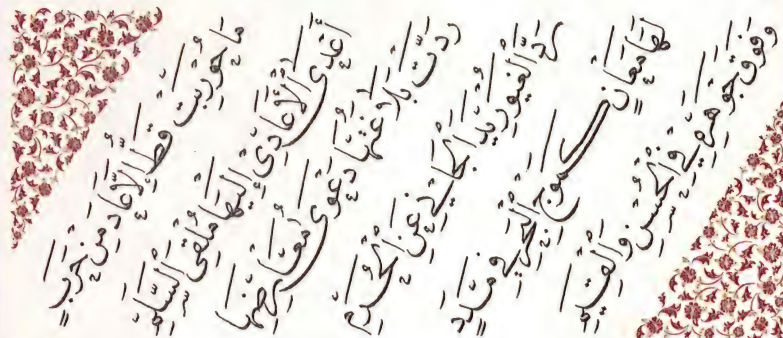 مَا حُورِبَتْ قَطُّ إِلَّا عَادَ مِنْ حَرَبٍ
أَعْدَى ٱلْأَعَادِي إِلَيْهَا مُلْقِيَ ٱلسَّلَمِ
رَدَّتْ بَلَاغَتُهَا دَعْوَى مُعَارِضِهَا
رَدَّ ٱلْغَيُورِ يَدَ ٱلْجَانِي عَنِ ٱلْحُرَمِ
لَهَا مَعَانٍ كَمَوْجِ ٱلْبَحْرِ فِي مَدَدٍ
وَفَوْقَ جَوْهَرِهِ فِي ٱلْحُسْنِ وَٱلْقِيَمِ